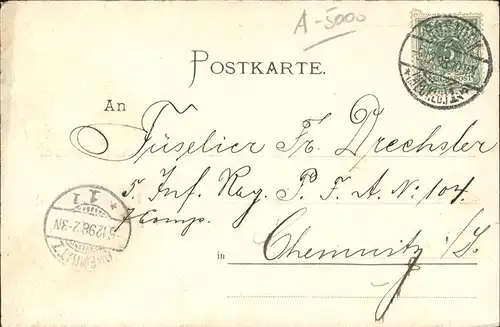 A-5000
5
POSTKARTE.
An
Füselier Fr. Drechsler
5. Inf. Reg. P. F. A. No 104
Comp.
in Chemnitz i/S.
CHEMNITZ
5.12.98. 2-3N
* 1 1